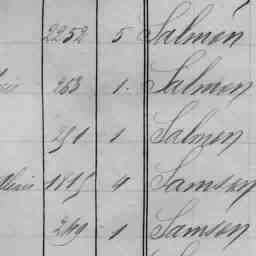 2252 5 Salmon
263 1. Salmon
291. 1 Salmon
1815 4 Samson
249 1 Samson